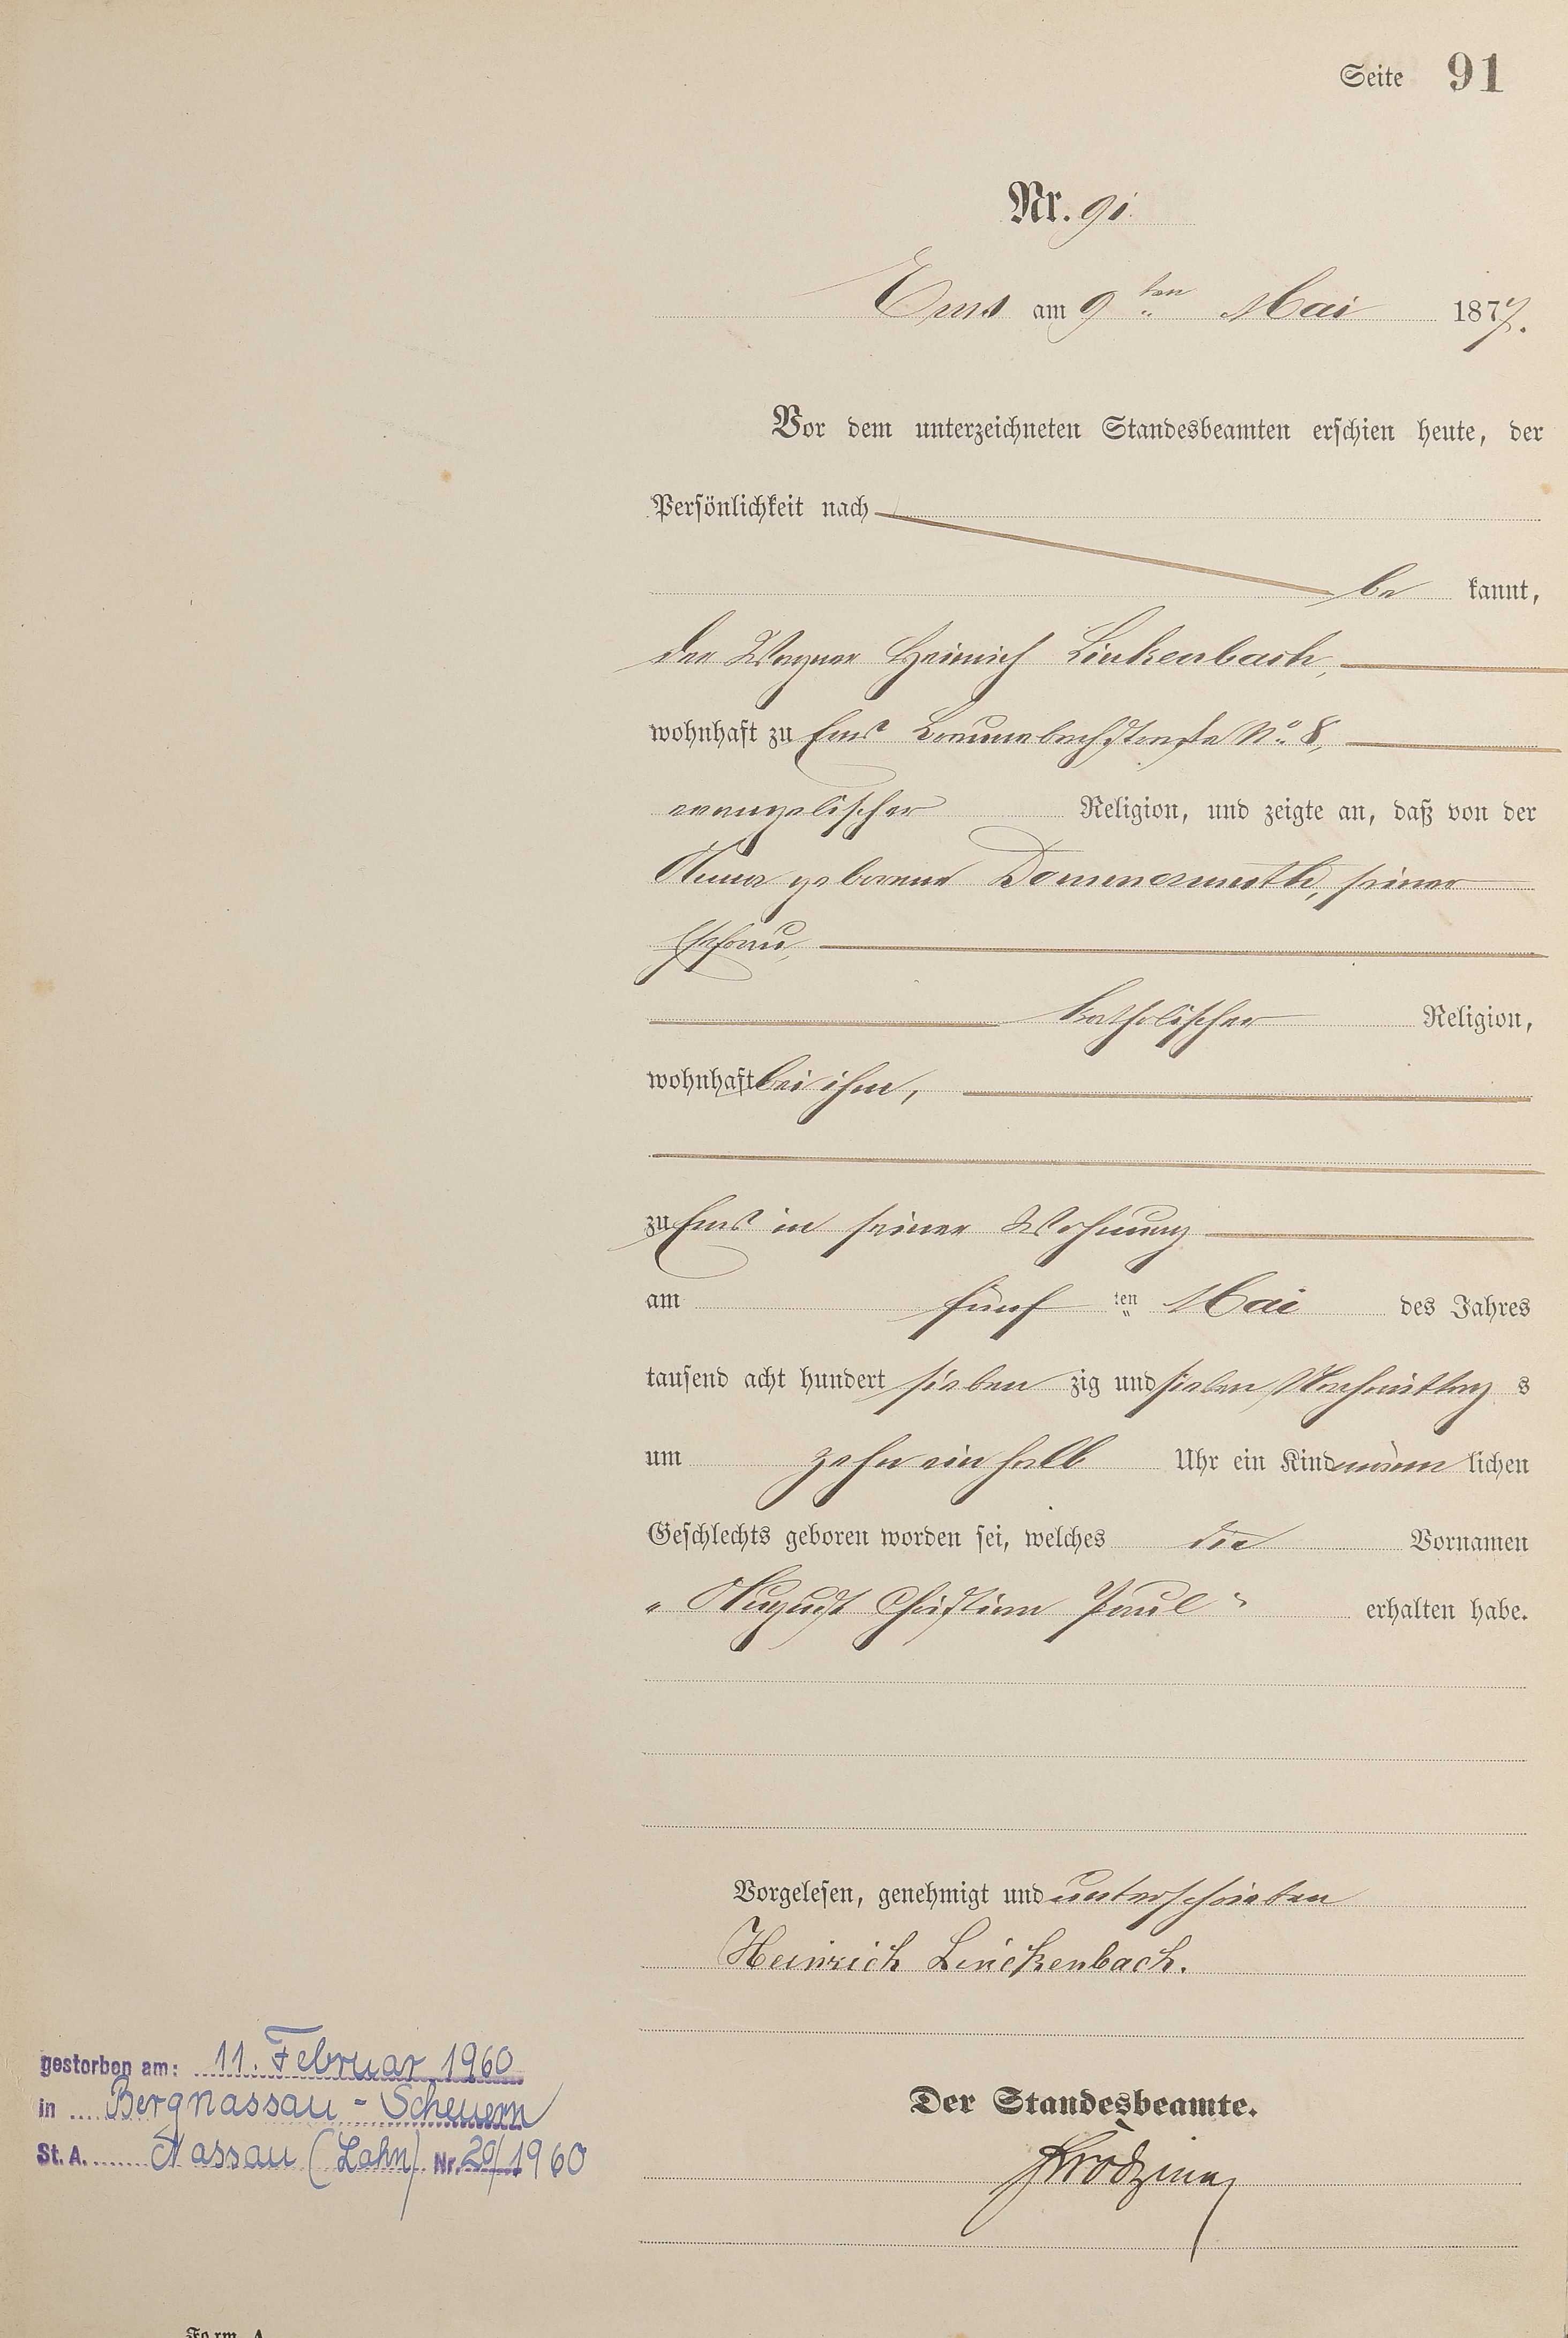 Seite 91
Nr. 91
Ems am 9ten Mai 1877.
Vor dem unterzeichneten Standesbeamten erschien heute, der
Persönlichkeit nach
bekannt,
der Wagner Heinrich Linkenbach,
wohnhaft zu Ems Braunebachstraße No. 8,
evangelischer Religion, und zeigte an, daß von der
Anna geborene Dommermuth, seiner
Ehefrau,
katholischer Religion,
wohnhaft bei ihm,
zu Ems in seiner Wohnung
am fünften Mai des Jahres
tausend acht hundert siebenzig und sieben Nachmittags
um zehn ein halb Uhr ein Kind männlichen
Geschlechts geboren worden sei, welches die Vornamen
„August Christian Paul“ erhalten habe.
Vorgelesen, genehmigt und unterschrieben
Heinrich Linckenbach.
Der Standesbeamte.
gestorben am: 11. Februar 1960
in Bergnassau - Scheuern
St. A. Nassau (Lahn) Nr. 20/1960
Form. A